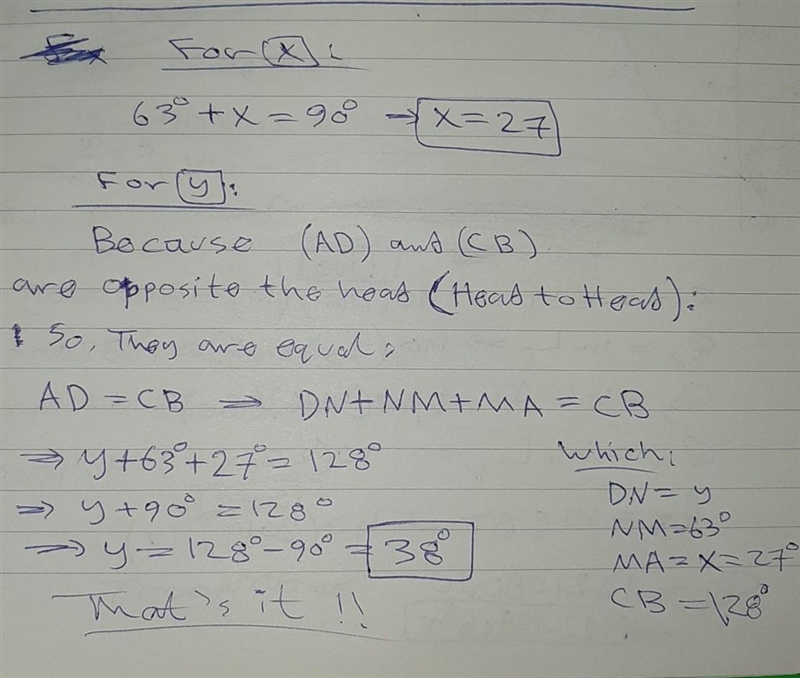 For (x):
63° + x = 90° → x = 27
For (y):
Because (AD) and (CB)
are opposite the head (Head to Head):
So, They are equal:
AD = CB → DN+NM+MA = CB
⇒ y+63°+27° = 128°
⇒ y+90° = 128°
⇒ y = 128° - 90° = 38°
That's it !!
Which:
DN = y
NM = 63°
MA = x = 27°
CB = 128°